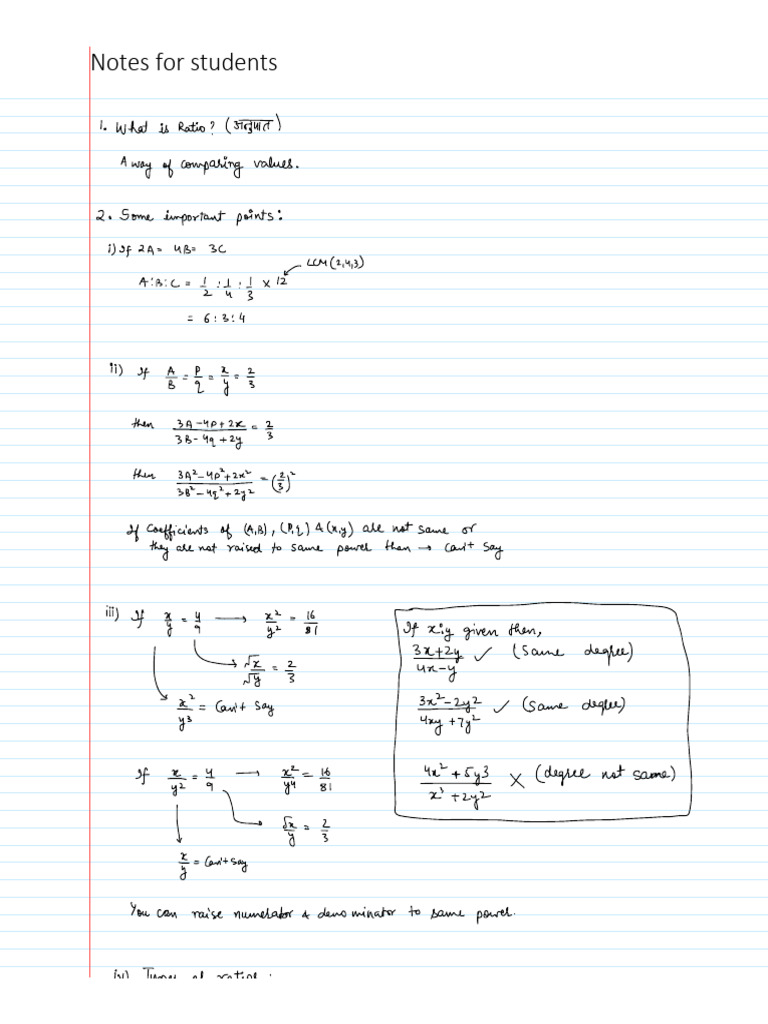 Notes for students
1. What is Ratio? (अनुपात)
A way of comparing values.
2. Some important points:
i) If 2A = 4B = 3C
LCM (2,4,3)
A:B:C = 1/2 : 1/4 : 1/3 × 12
= 6:3:4
ii) If A/B = P/q = x/y = 2/3
then (3A-4P+2x)/(3B-4q+2y) = 2/3
then (3A²-4P²+2x²)/(3B²-4q²+2y²) = (2/3)²
If Coefficients of (A,B), (P,q) & (x,y) are not same or
they are not raised to same power then → Can't Say
iii) If x/y = 4/9 → x²/y² = 16/81
√x/√y = 2/3
x²/y³ = Can't Say
If x/y² = 4/9 → x²/y⁴ = 16/81
√x/y = 2/3
x/y = Can't Say
If x:y given then,
(3x+2y)/(4x-y) ✓ (Same degree)
(3x²-2y²)/(4xy+7y²) ✓ (Same degree)
(4x²+5y3)/(x³+2y²) × (degree not same)
You can raise numerator & denominator to same power.
iv) Types of ratios: